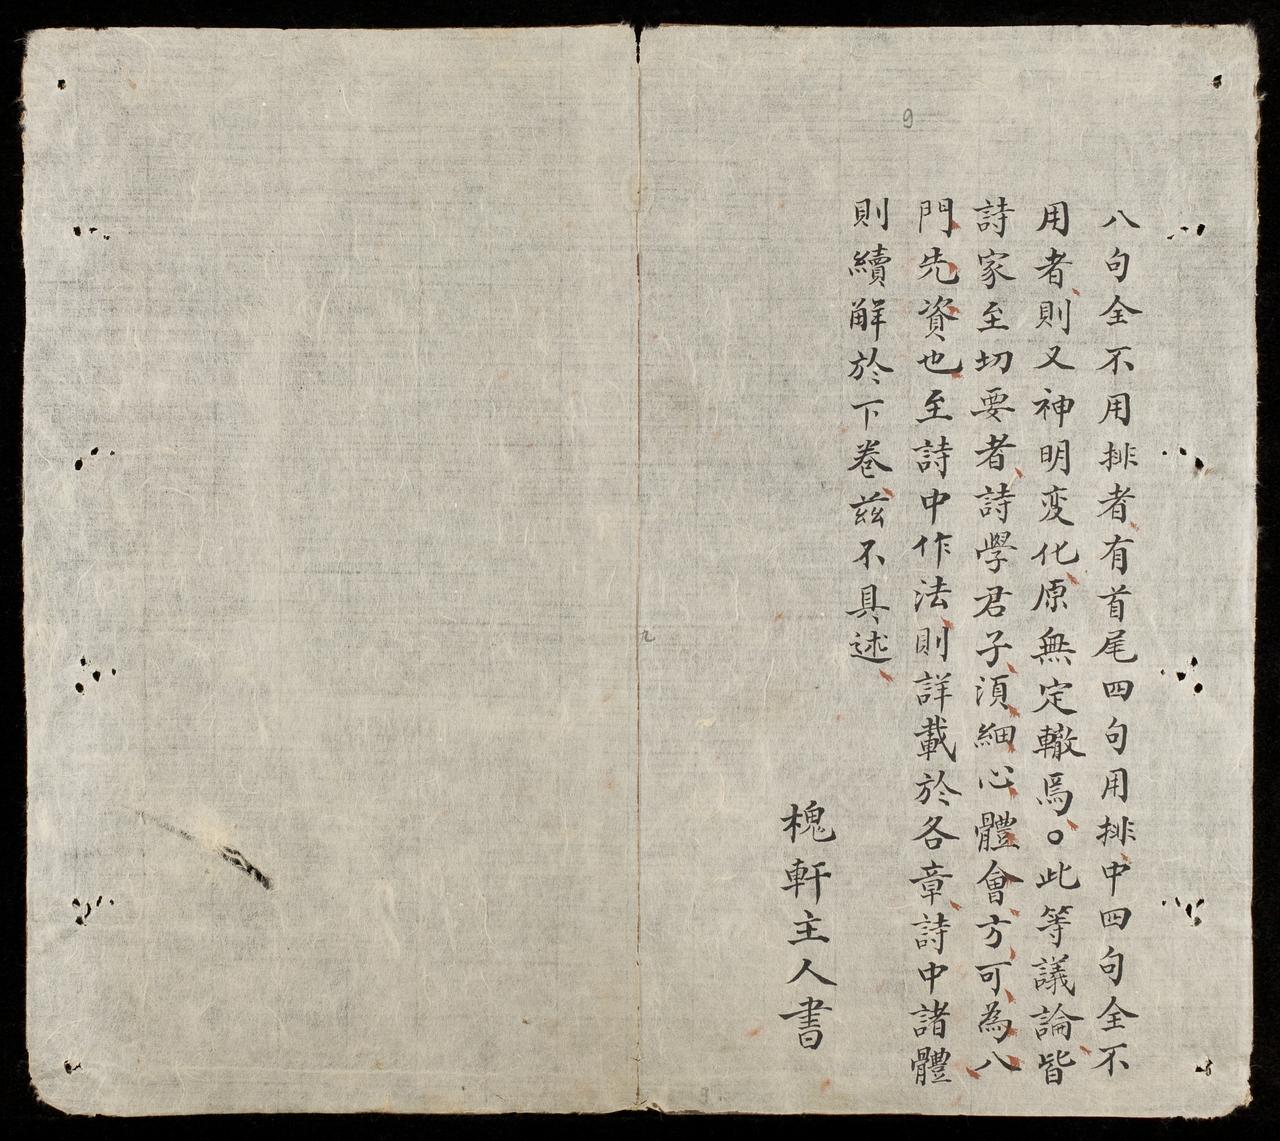 9
八句全不用排者有首尾四句用排中四句全不
用者則又神明変化原無定轍焉○此等議論皆
詩家至切要者詩學君子須細心體會方可為入
門先資也至詩中作法則詳載於各章詩中諸體
則續解於下卷兹不具述
槐軒主人書
九
9